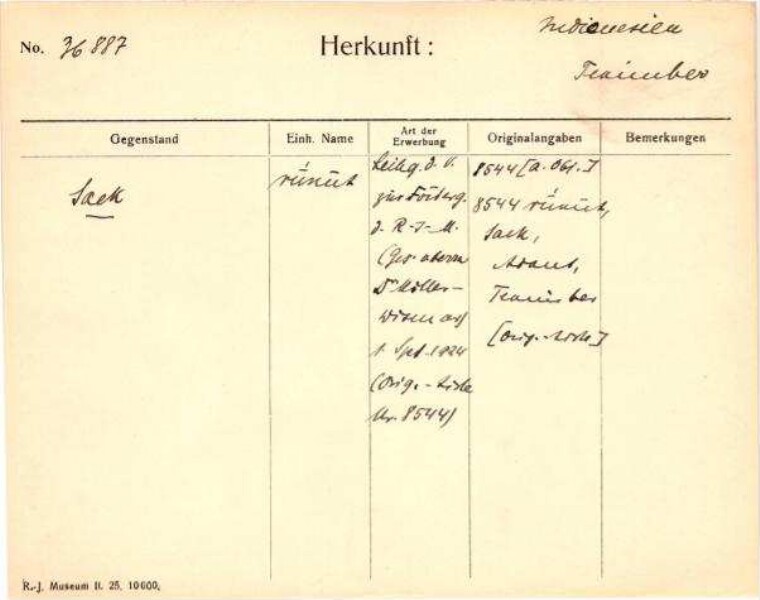 No. 36887
Herkunft:
Indonesien
Tanimber
Gegenstand
Einh. Name
Art der
Erwerbung
Originalangaben
Bemerkungen
Sack
rúnút
Leihg. d. V.
zur Förderg.
d. R-J-M.
(Ges.
Dr Müller-
Wismar)
1 Spt. 1924
(Orig.-Liste
Nr. 8544)
8544 [a. Obj.]
8544 rúnút,
Sack,
Adaut,
Tanimber
[Orig.-Liste]
R.-J. Museum II. 25. 10000.